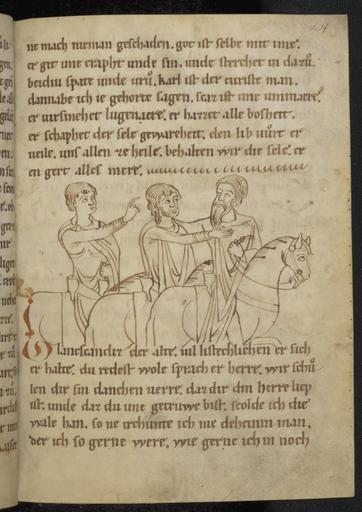 ne mach nieman geschaden. got ist selbe mit ime.
er git ime crapht unde sin. unde sterchet in da zů.
beidiu spate unde vrů. karl ist der turiste man.
dannabe ich ie gehorte sagen. scaz ist ime unmaere.
er virsmehet lugenaere. er hazzet alle bosheit.
er schaphet der sele gewareheit. den lib vůrt er
veile. uns allen ze heile. behalten wir die sele. er
en gert alles mere.
der alte. vil listechlichen er sich
er halte. du redest wole sprach er herre. wir schů
len dir sin danchen verre. daz dir din herre liep
ist. unde daz du ime getruwe bist. scolde ich die
wale han. so ne irchunte ich nie deheinin man.
der ich so gerne were. wie gerne ich in noch